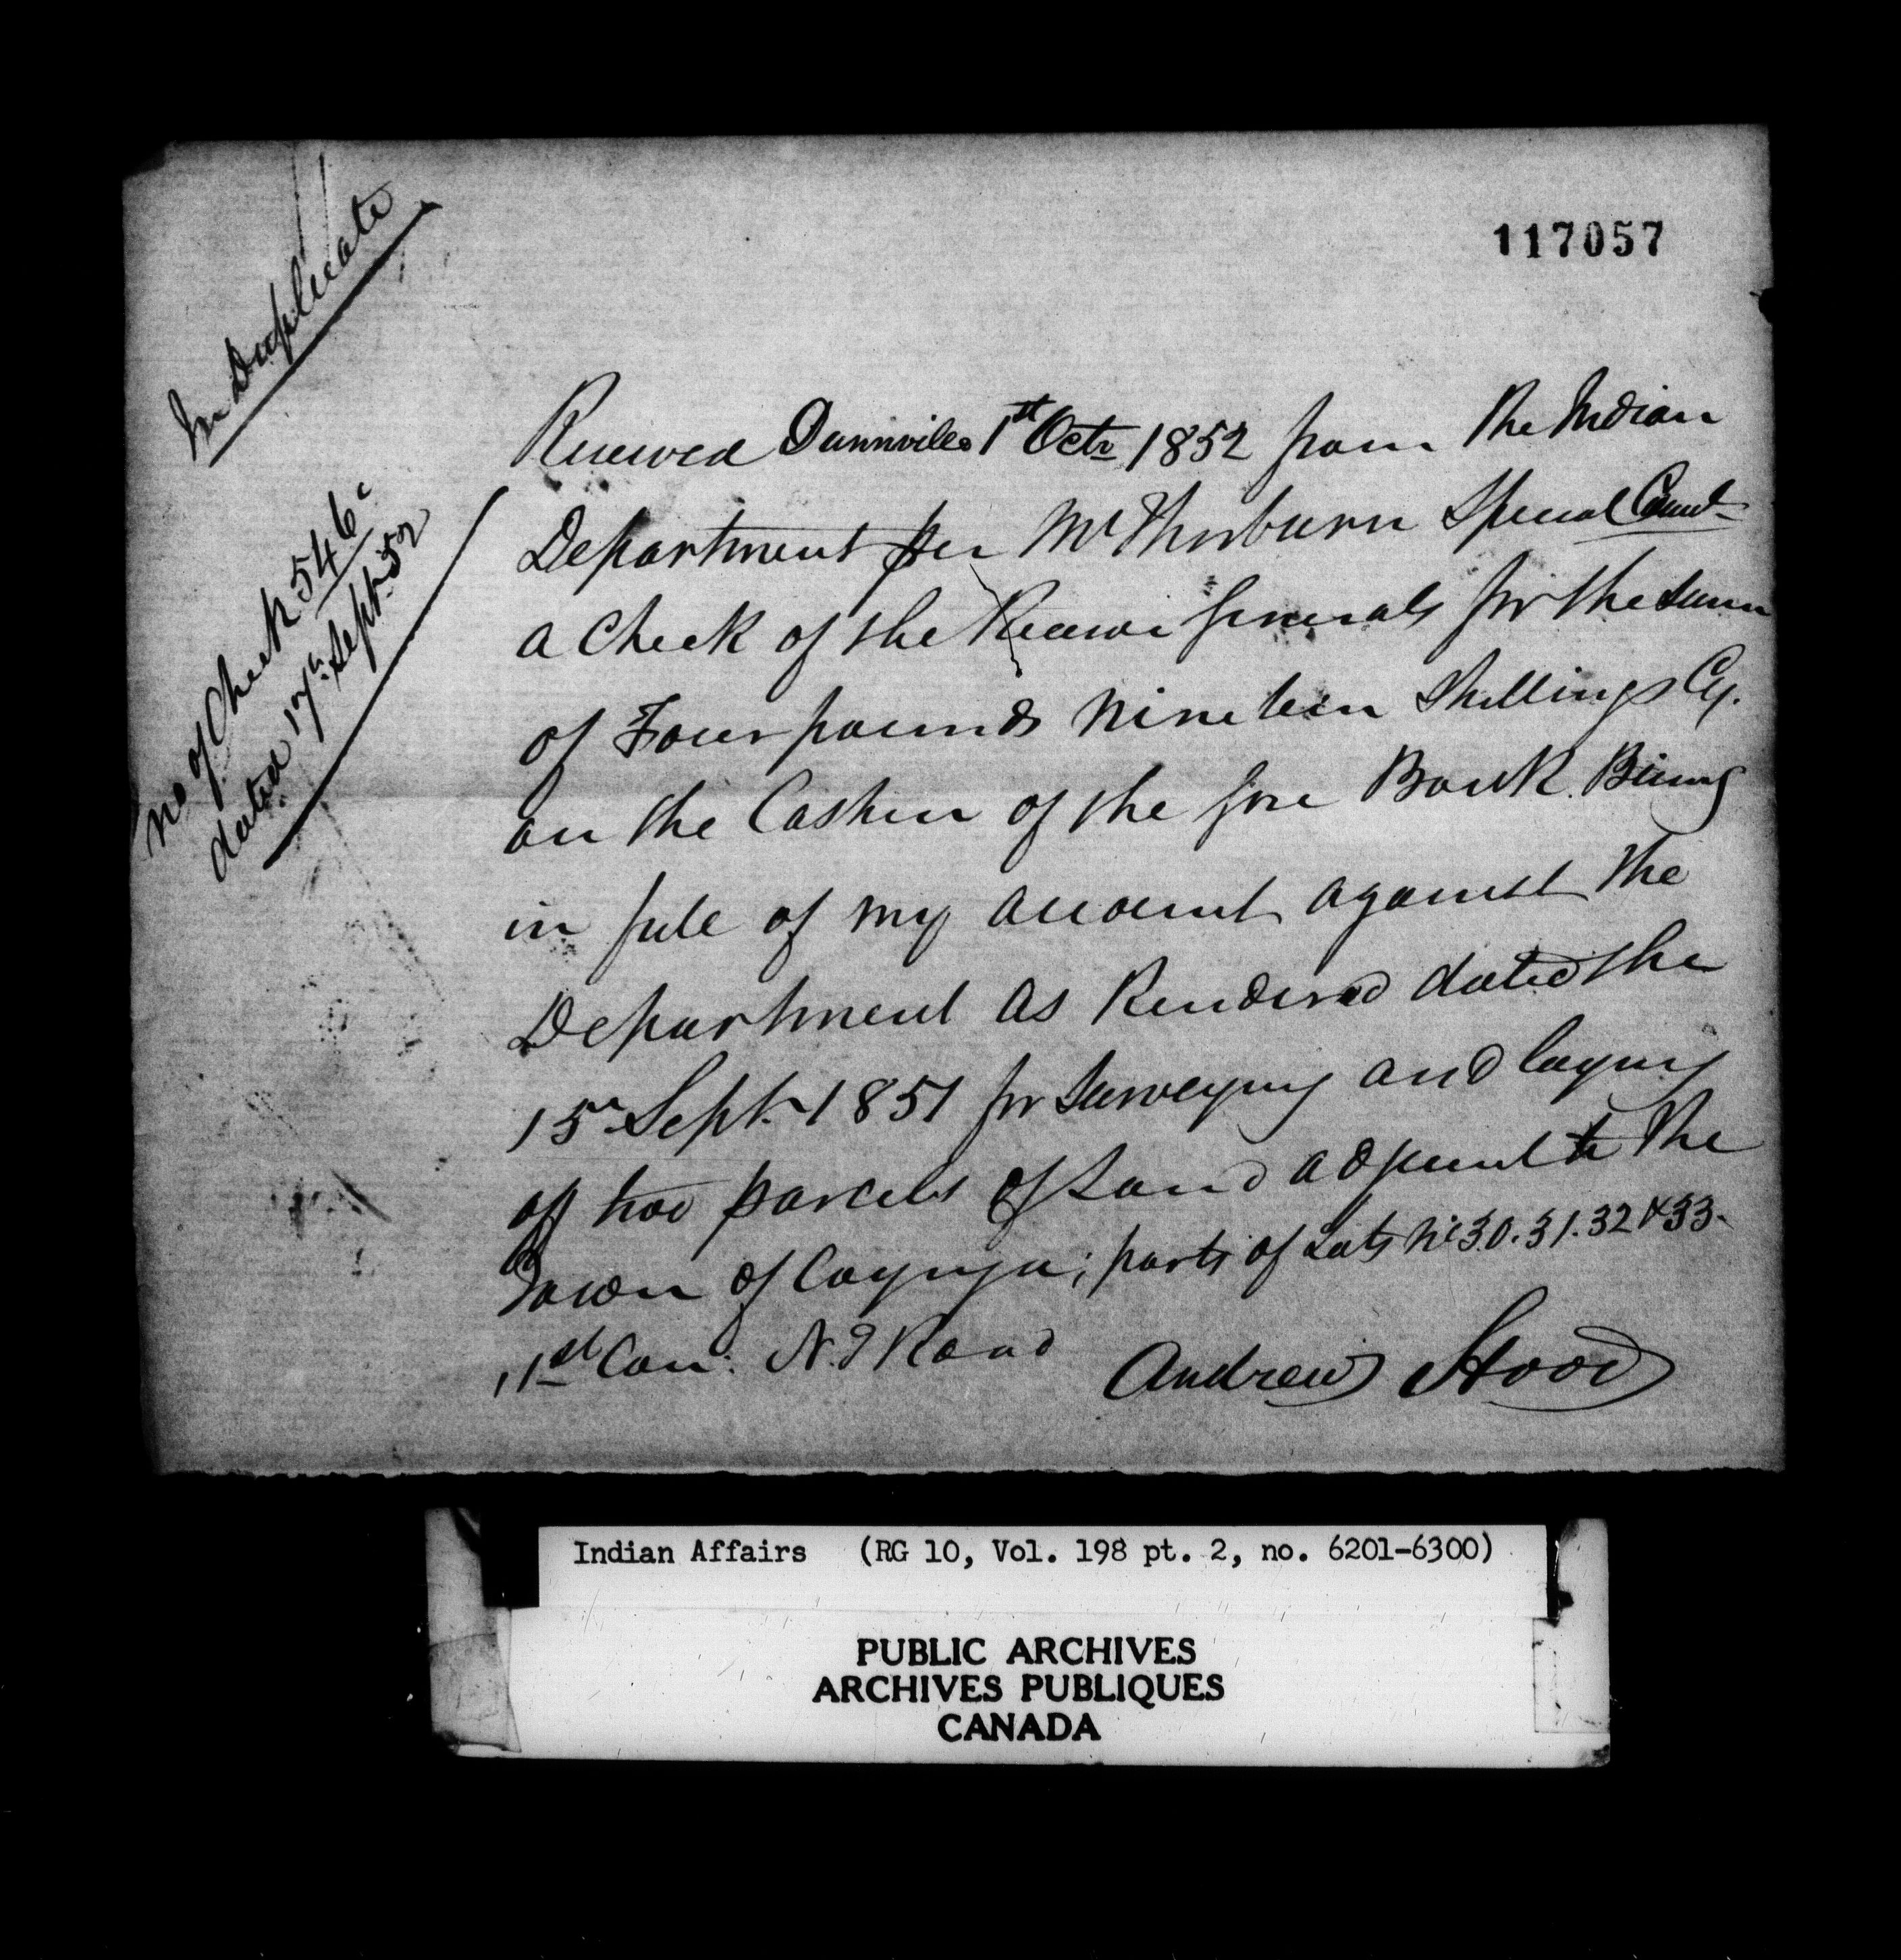 117057
In Duplicate
No of Check 546
dated 17th Sept. 52
Received Dunnville 1st Octr 1852 from the Indian
Department per Mr Thorburn Special Comt
a Check of the Receiver Generals for the Sum
of Four pounds Nineteen Shillings Cy.
on the Cashier of the Gore Bank. Being
in full of my account against the
Department as Rendered dated the
15 Sept. 1851 for Surveying and laying
off two parcels of Land adjacent to the
Town of Cayuga; parts of Lots No 30. 31. 32 & 33.
1st Con: N. T Road Andrew Hood
Indian Affairs (RG 10, Vol. 198 pt. 2, no. 6201-6300)
PUBLIC ARCHIVES
ARCHIVES PUBLIQUES
CANADA